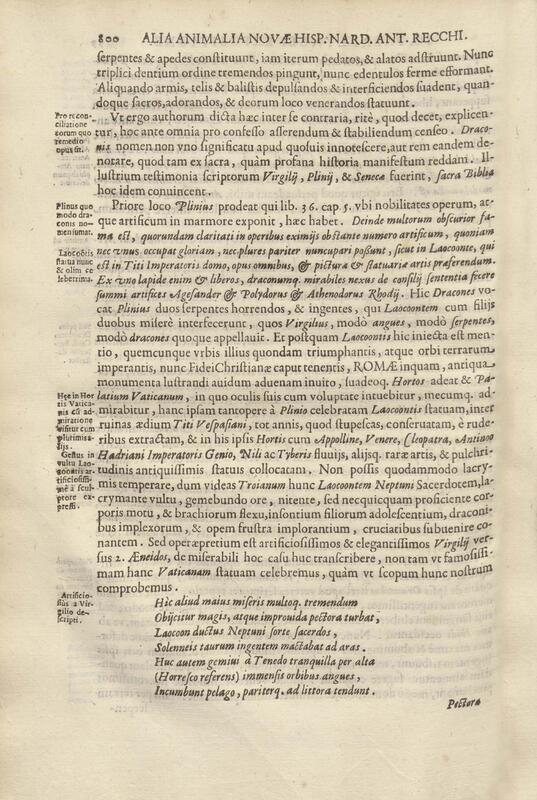 800 ALIA ANIMALIA NOVÆ HISP. NARD. ANT. RECCHI.
serpentes & apedes constituunt, iam iterum pedatos, & alatos adstruunt. Nunc
triplici dentium ordine tremendos pingunt, nunc edentulos ferme efformant.
Aliquando armis, telis & balistis depulsandos & interficiendos suadent, quan-
doque sacros, adorandos, & deorum loco venerandos statuunt.
Pro recon-
ciliatione
eorum quo
remedio
opus sit.
Vt ergo authorum dicta hæc inter se contraria, ritè, quod decet, explicen-
tur, hoc ante omnia pro confesso asserendum & stabiliendum censeo. Draco-
nis nomen non vno significatu apud quosuis innotescere, aut rem eandem de-
notare, quod tam ex sacra, quàm profana historia manifestum reddam. Il-
lustrium testimonia scriptorum Virgilij, Plinij, & Senecæ fuerint, sacra Biblia
hoc idem conuincent.
Plinius quo
modo dra-
cones no-
meniumat.
Laocoōtis
statua nunc
& olim ce
lebertima.
Priore loco Plinius prodeat qui lib. 36. cap. 5. vbi nobilitates operum, at-
que artificum in marmore exponit, hæc habet. Deinde multorum obscurior fa-
ma est, quorundam claritati in operibus eximijs obstante numero artificum, quoniam
nec vnus occupat gloriam, nec plures pariter nuncupari possunt, sicut in Laocoonte, qui
est in Titi Imperatoris domo, opus omnibus, & picturæ & statuariæ artis præferendum.
Ex vno lapide enim & liberos, draconumq. mirabiles nexus de consilij sententia fecere
summi artifices Agesander & Polydorus & Athenodorus Rhodij. Hic Dracones vo-
cat Plinius duos serpentes horrendos, & ingentes, qui Laocoontem cum filijs
duobus miserè interfecerunt, quos Virgilius, modò angues, modò serpentes,
modò dracones quoque appellauit. Et postquam Laocoontis hic iniecta est men-
tio, quemcunque vrbis illius quondam triumphantis, atque orbi terrarum
imperantis, nunc Fidei Christianæ caput tenentis, ROMÆ inquam, antiqua
monumenta lustrandi auidum aduenam inuito, suadeoq. Hortos adeat & Pa-
Hęc in Hor
tis Vatica-
nis cū ad-
miratione
visitur cum
plurimis a-
lijs.
Gestus in
vultu Lao-
coōntis ar-
tificiosissi-
mè à scul-
ptore ex-
pressi.
latium Vaticanum, in quo oculis suis cum voluptate intuebitur, mecumq. ad-
mirabitur, hanc ipsam tantopere à Plinio celebratam Laocoontis statuam, inter
ruinas ædium Titi Vespasani, tot annis, quod stupescas, conseruatam, è rude-
ribus extractam, & in his ipsis Hortis cum Appolline, Venere, Cleopatra, Antinoo
Hadriani Imperatoris Genio, Nili ac Tyberis fluuijs, alijsq. raræ artis, & pulchri-
tudinis antiquissimis statuis collocatam. Non possis quodammodo lacry-
mis temperare, dum videas Troianum hunc Laocoontem Neptuni Sacerdotem, la-
crymante vultu, gemebundo ore, nitente, sed necquicquam proficiente cor-
poris motu, & brachiorum flexu, insontium filiorum adolescentium, draconi-
bus implexorum, & opem frustra implorantium, cruciatibus subuenire co-
nantem. Sed operæpretium est artificiosissimos & elegantissimos Virgilij ver-
sus 2. Æneidos, de miserabili hoc casu huc transcribere, non tam vt famosissi-
mam hanc Vaticanam statuam celebremus, quàm vt scopum hunc nostrum
comprobemus.
Artificio-
siùs a Vir-
gilio de-
scripti.
Hic aliud maius miseris multoq. tremendum
Obijcitur magis, atque improuida pectora turbat,
Laocoon ductus Neptuni sorte sacerdos,
Solenneis taurum ingentem mactabat ad aras.
Huc autem gemini à Tenedo tranquilla per alta
(Horresco referens) immensis orbibus angues,
Incumbunt pelago, pariterq. ad littora tendunt.
Pectora